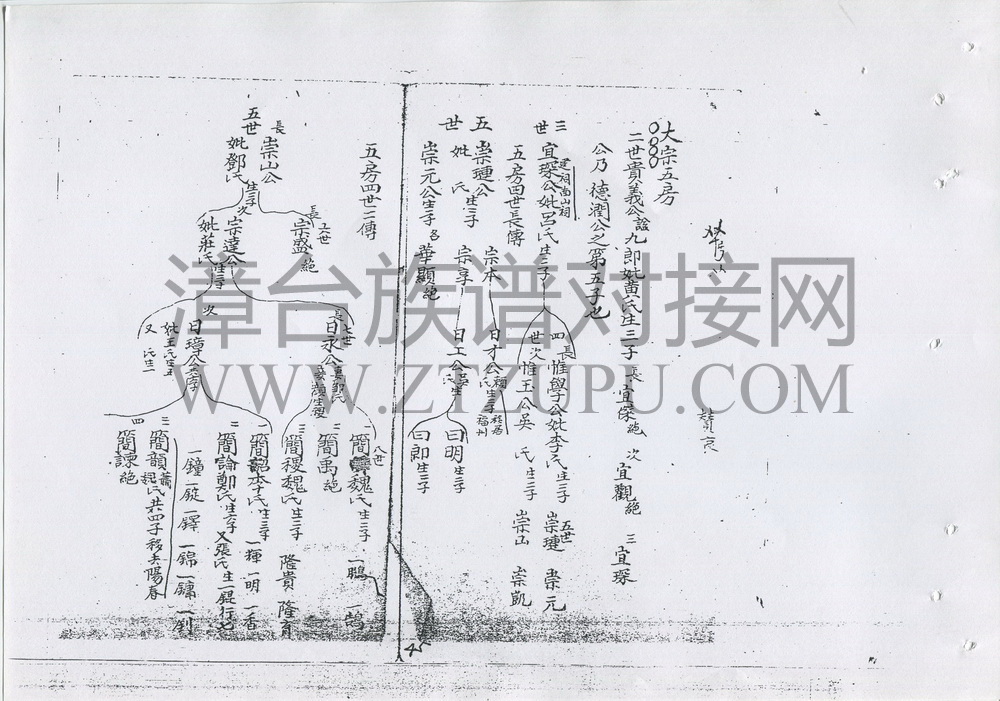 大宗五房
二世貴義公諡九郎妣黄氏生三子 長宜傑絶 次宜觀絶 三宜琛
公乃德潤公之第五子也
三世 宜琛公妣呂氏生二子
建祠南山祠
長 四世 惟學公妣李氏生三子 五世 崇璉 崇元
次 惟玉公吳氏生三子 崇山 崇凱
五房四世長傳
五世 崇璉公生二子
妣 氏
宗本 日才公
宗享 日工公吳氏生
福州
日明生三子
日郎生三子
崇元公生三子 名華顯絶
五房四世二傳
五世 長 崇山公
妣鄭氏生二子
長 六世 宗盛絶
次 宗達公生三子
妣莊氏
長 七世 日永公
次 日璋公
妣王氏生
又 氏生一
八世
一 簡 魏氏生三子 一鵬 一鵠
二 簡禹絶
三 簡稷魏氏生三子 隆貴 隆育
一 簡 李氏生三子 一輝 一明 一香
二 簡論鄭氏生六子 又張氏生一鋌行七
一鐘 一錠 一鐸 一錦 一鏞 一釗
三 簡韻 魏氏共四子移去陽春
四 簡諫絶
45
漳台族谱对接网
WWW.ZTZUPU.COM